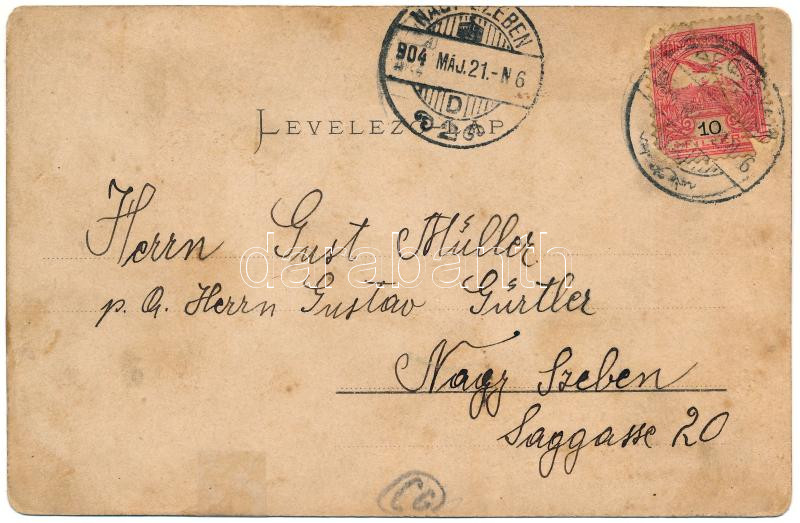 NAGY-SZEBEN
904 MÁJ. 21.-N 6
D
LEVELEZŐ-LAP
10
Herrn Gust Müller
p. A. Herrn Gustav Gürtler
Nagy Szeben
Saggasse 20
darabanth
CG